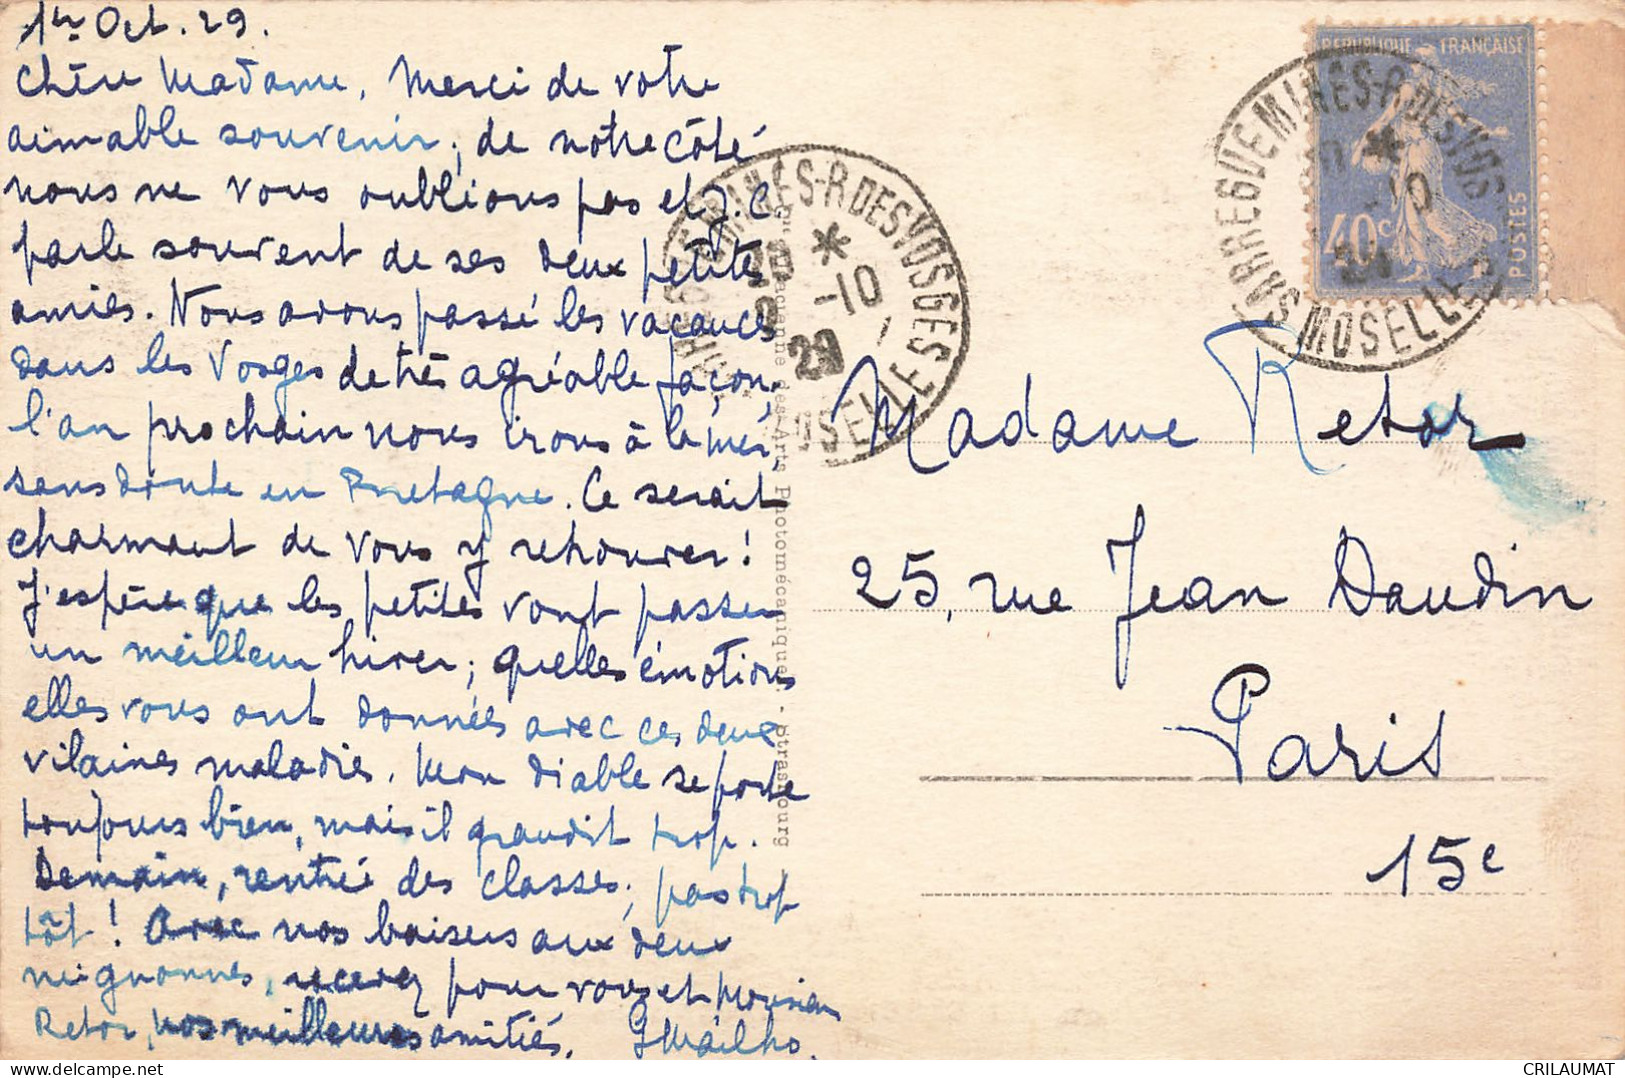 1er Oct. 29.
Chère Madame, Merci de votre
aimable souvenir; de notre côté
nous ne vous oublions pas et J.C.
parle souvent de ses deux petites
amies. Nous avons passé les vacances
dans les Vosges de très agréable façon,
l'an prochain nous irons à la mer
sans doute en Bretagne. Ce serait
charmant de vous y retrouver!
J'espère que les petites vont passer
un meilleur hiver; quelles émotions
elles vous ont données avec ces deux
vilaines maladies. Mon diable se porte
toujours bien, mais il grandit trop.
Demain, rentrée des classes; pas trop
tôt! Avec nos baisers aux deux
mignonnes, recevez pour vous et Monsieur
Retor, nos meilleures amitiés.
Madame Retor
25, rue Jean Daudin
Paris
15e
REPUBLIQUE FRANÇAISE
40c
POSTES
SARREGUEMINES-R.DES VOSGES
MOSELLE
-10
SARREGUEMINES-R.DES VOSGES
* -10
29
MOSELLE
des Arts Photomécaniques - Strasbourg
CRILAUMAT